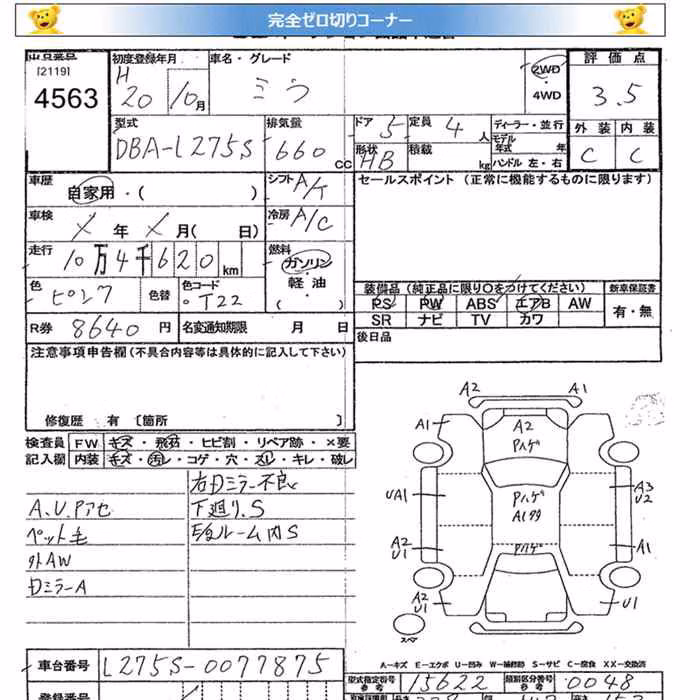 完全ゼロ切りコーナー
出品番号
[2119]
4563
初度登録年月
H
20 10月
車名・グレード
ミラ
2WD
・
4WD
評価点
3.5
外装 内装
C C
型式
DBA-L275S
排気量
660 cc
ドア 5
定員 4 人
形状 HB
積載 kg
ディーラー・並行
モデル
年式 年
ハンドル 左・右
車歴
自家用・( )
シフト A/T
セールスポイント (正常に機能するものに限ります)
車検
X 年 X 月( 日)
冷房 A/C
走行
10万4千620km
燃料
ガソリン
軽油
・
( )
色
ピンク
色替
色コード
・T22
装備品 (純正品に限り○をつけてください)
新車保証書
PS PW ABS エアB AW
SR ナビ TV カワ
有・無
R券 8640 円
名変通知期限 月 日
後日品
注意事項申告欄 (不具合内容等は具体的に記入して下さい)
修復歴 有 [箇所 ]
検査員
記入欄
FW キズ・飛石・ヒビ割・リペア跡・×要
内装 キズ・汚レ・コゲ・穴・スレ・キレ・破レ
右Dミラー不良
A.U.Pアセ
下廻り.S
ペット毛
E/gルーム内S
外AW
Dミラー A
A2 A1
A1
A2
Pハゲ
UA1
Pハゲ
A1多
A3
U2
A2
U1
Pハゲ
A1
A2
U1
U1
スペア
A―キズ E―エクボ U―凹み W―補修跡 S―サビ C―腐食 XX―交換済
車台番号 L275S-0077875
型式指定番号
参考
15622
類別区分番号
参考
0048
登録番号